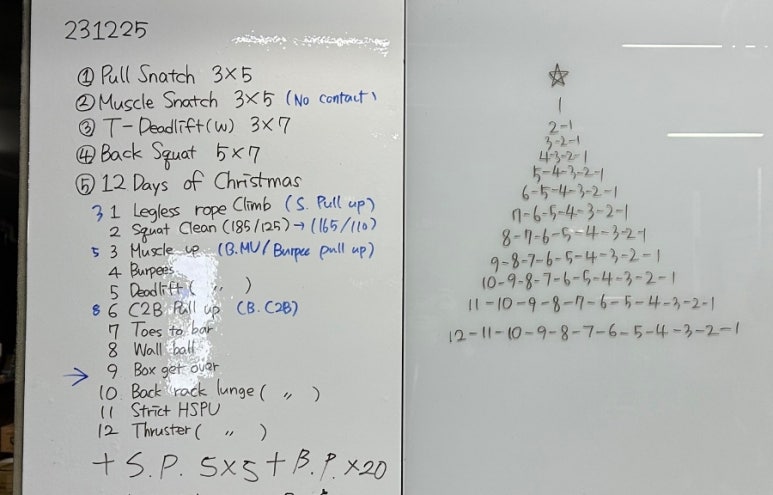 231225
① Pull Snatch 3×5
② Muscle Snatch 3×5 (No contact)
③ T-Deadlift(w) 3×7
④ Back Squat 5×7
⑤ 12 Days of Christmas
3 1 Legless rope Climb (S. Pull up)
2 Squat Clean (185/125) → (165/110)
5 3 Muscle up (B.MU/Burpee pull up)
4 Burpees
5 Deadlift ( 〃 )
8 6 C2B Pull up (B. C2B)
7 Toes to bar
8 Wall ball
→ 9 Box get over
10 Back rack lunge ( 〃 )
11 Strict HSPU
12 Thruster ( 〃 )
+ S.P. 5×5 + B.P. ×20
☆
1
2-1
3-2-1
4-3-2-1
5-4-3-2-1
6-5-4-3-2-1
7-6-5-4-3-2-1
8-7-6-5-4-3-2-1
9-8-7-6-5-4-3-2-1
10-9-8-7-6-5-4-3-2-1
11-10-9-8-7-6-5-4-3-2-1
12-11-10-9-8-7-6-5-4-3-2-1